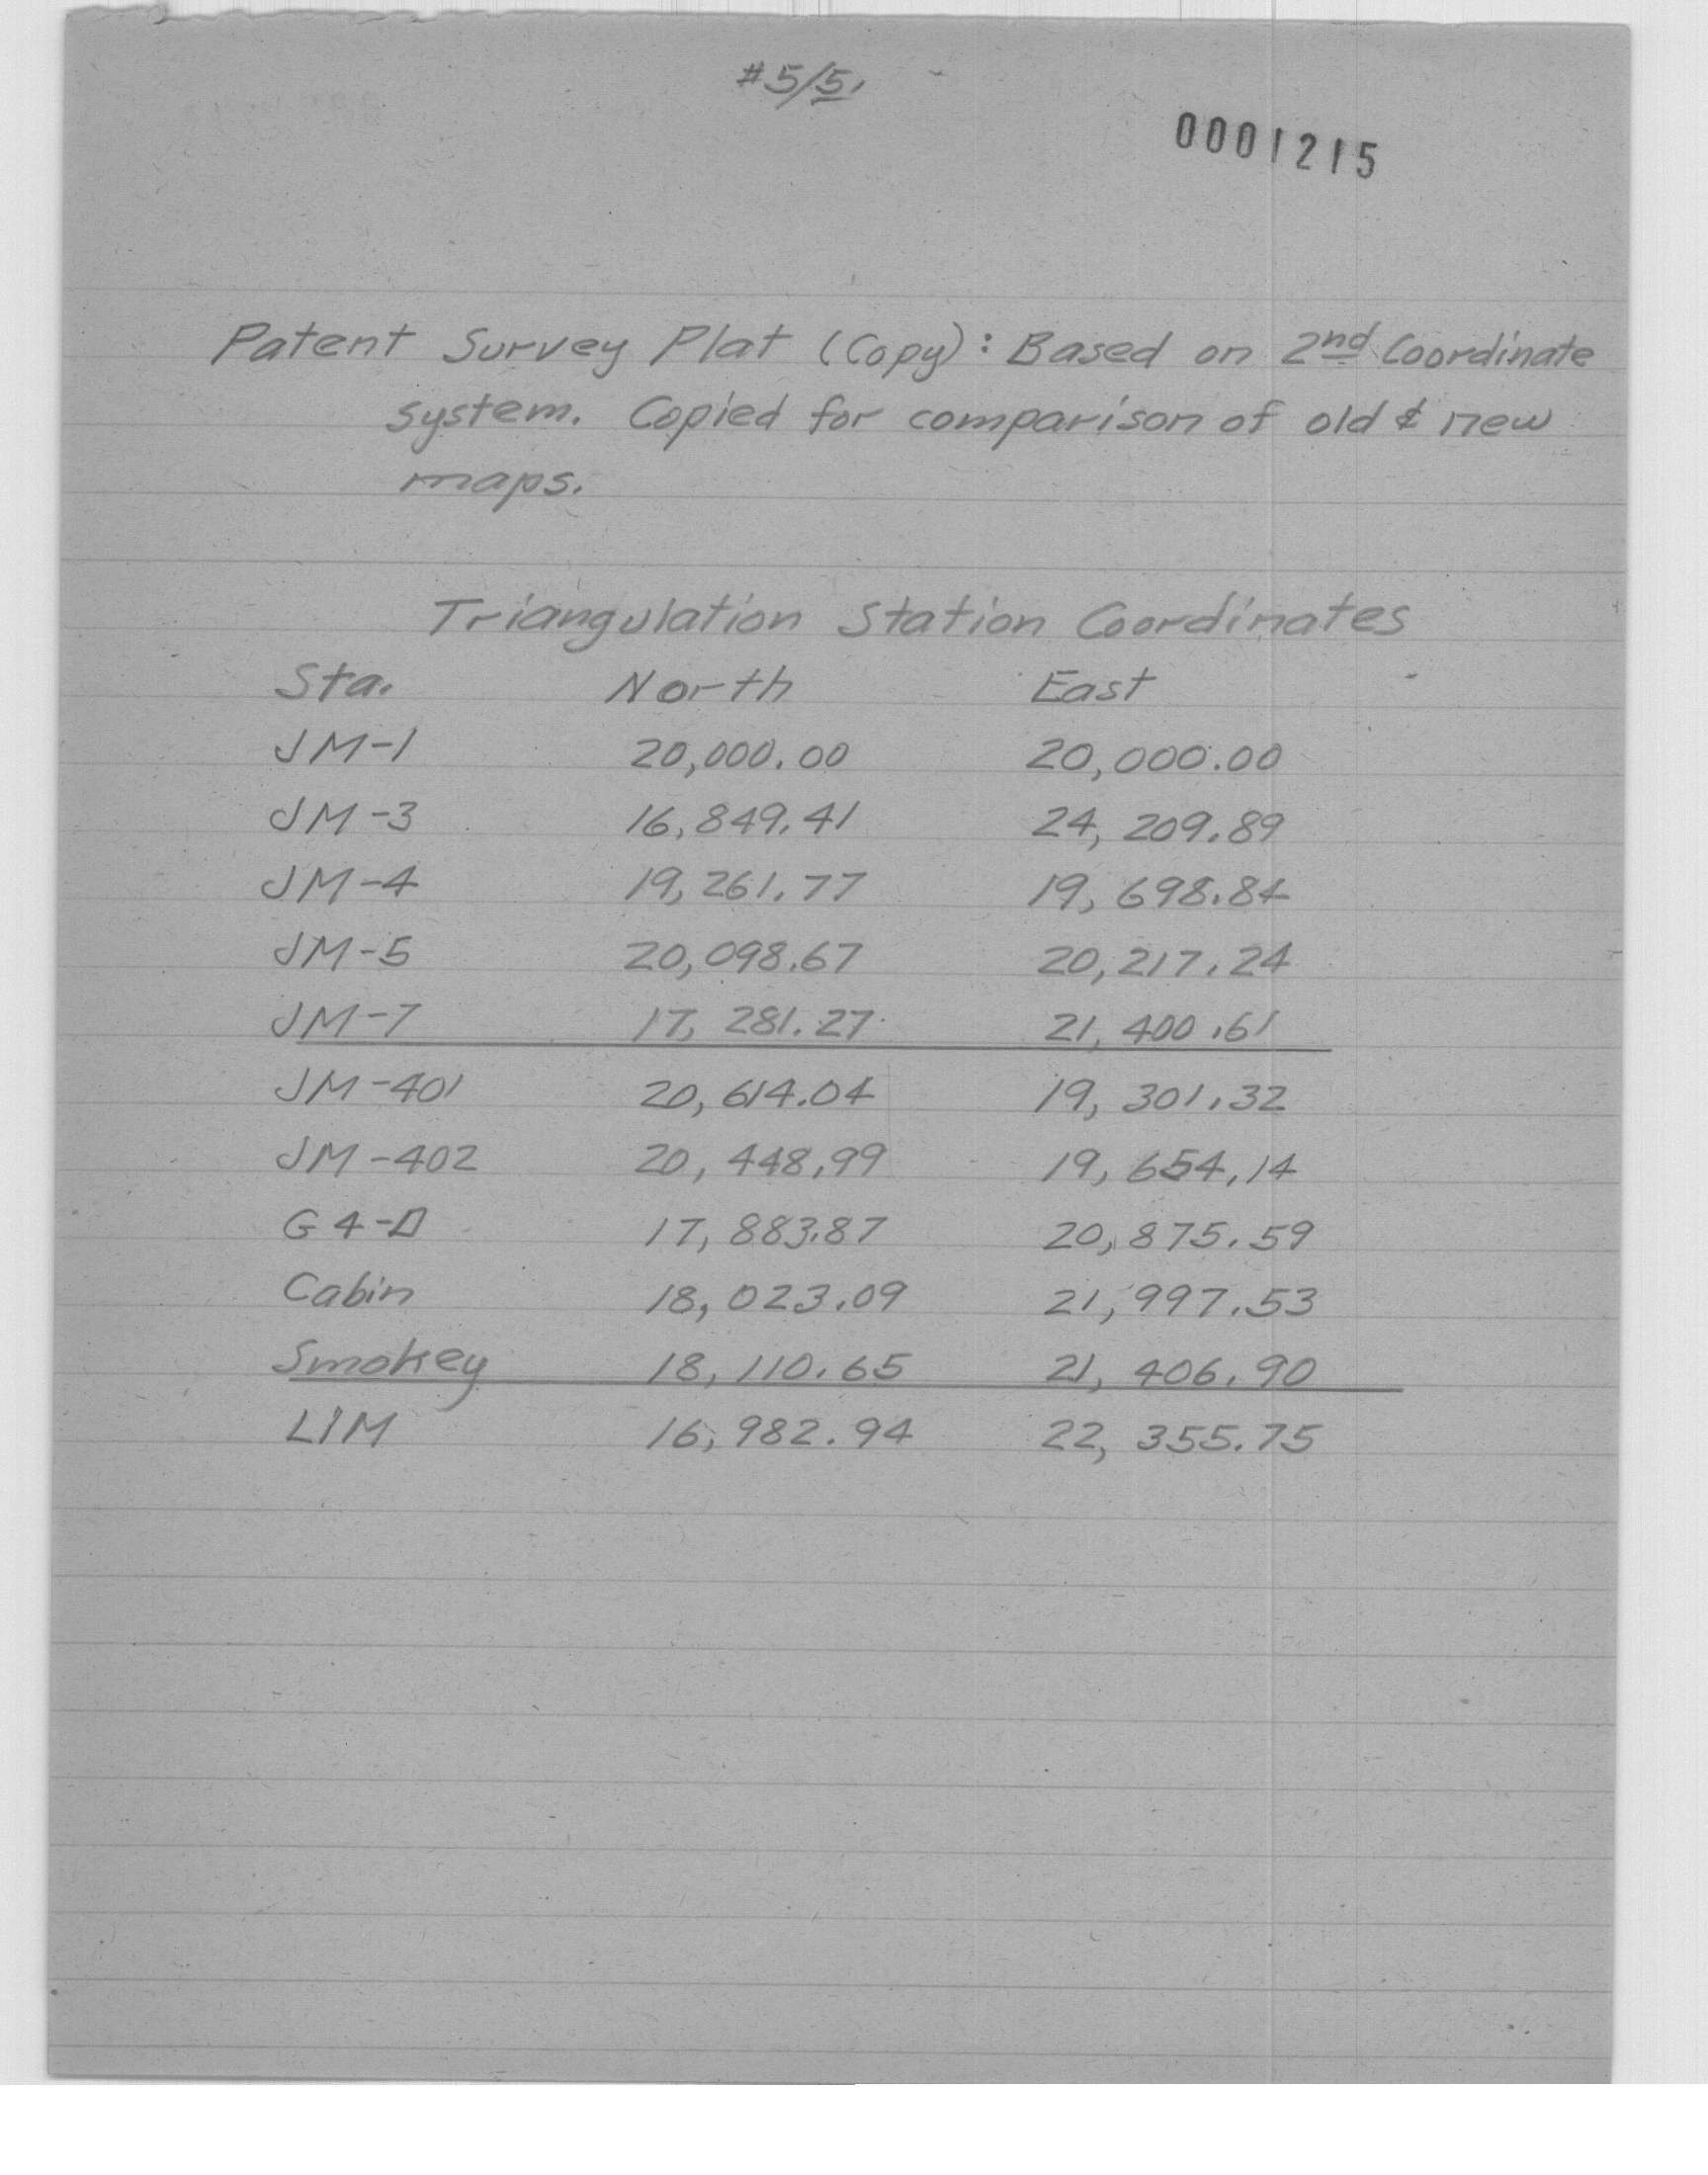 #5/5.
0001215
Patent Survey Plat (Copy): Based on 2nd Coordinate
system. Copied for comparison of old & new
maps.
Triangulation Station Coordinates
Sta. North East
JM-1 20,000.00 20,000.00
JM-3 16,849.41 24,209.89
JM-4 19,261.77 19,698.84
JM-5 20,098.67 20,217.24
JM-7 17,281.27 21,400.61
JM-401 20,614.04 19,301.32
JM-402 20,448.99 19,654.14
G4-D 17,883.87 20,875.59
Cabin 18,023.09 21,997.53
Smokey 18,110.65 21,406.90
LIM 16,982.94 22,355.75